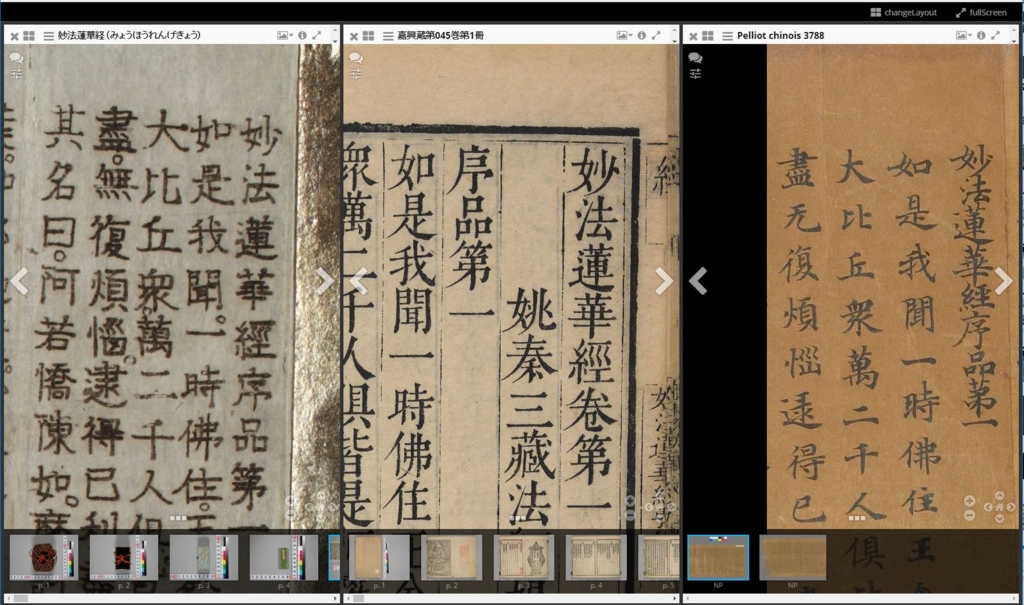 changeLayout
fullScreen
妙法蓮華経（みょうほうれんげきょう）
妙法蓮華經序品第一
如是我聞。一時佛住。王
大比丘衆。萬二千人俱
盡。無復煩惱。逮得已利
其名曰。阿若憍陳如。摩
p. 1
p. 2
p. 3
p. 4
嘉興蔵第045巻第1冊
妙法蓮華經卷第一
姚秦三藏法
序品第一
如是我聞一時佛住
衆萬二千人俱皆是
p. 1
p. 2
p. 3
p. 4
p. 5
Pelliot chinois 3788
妙法蓮華經序品第一
如是我聞一時佛住王
大比丘衆萬二千人俱
盡无復煩惱逮得已
NP
NP